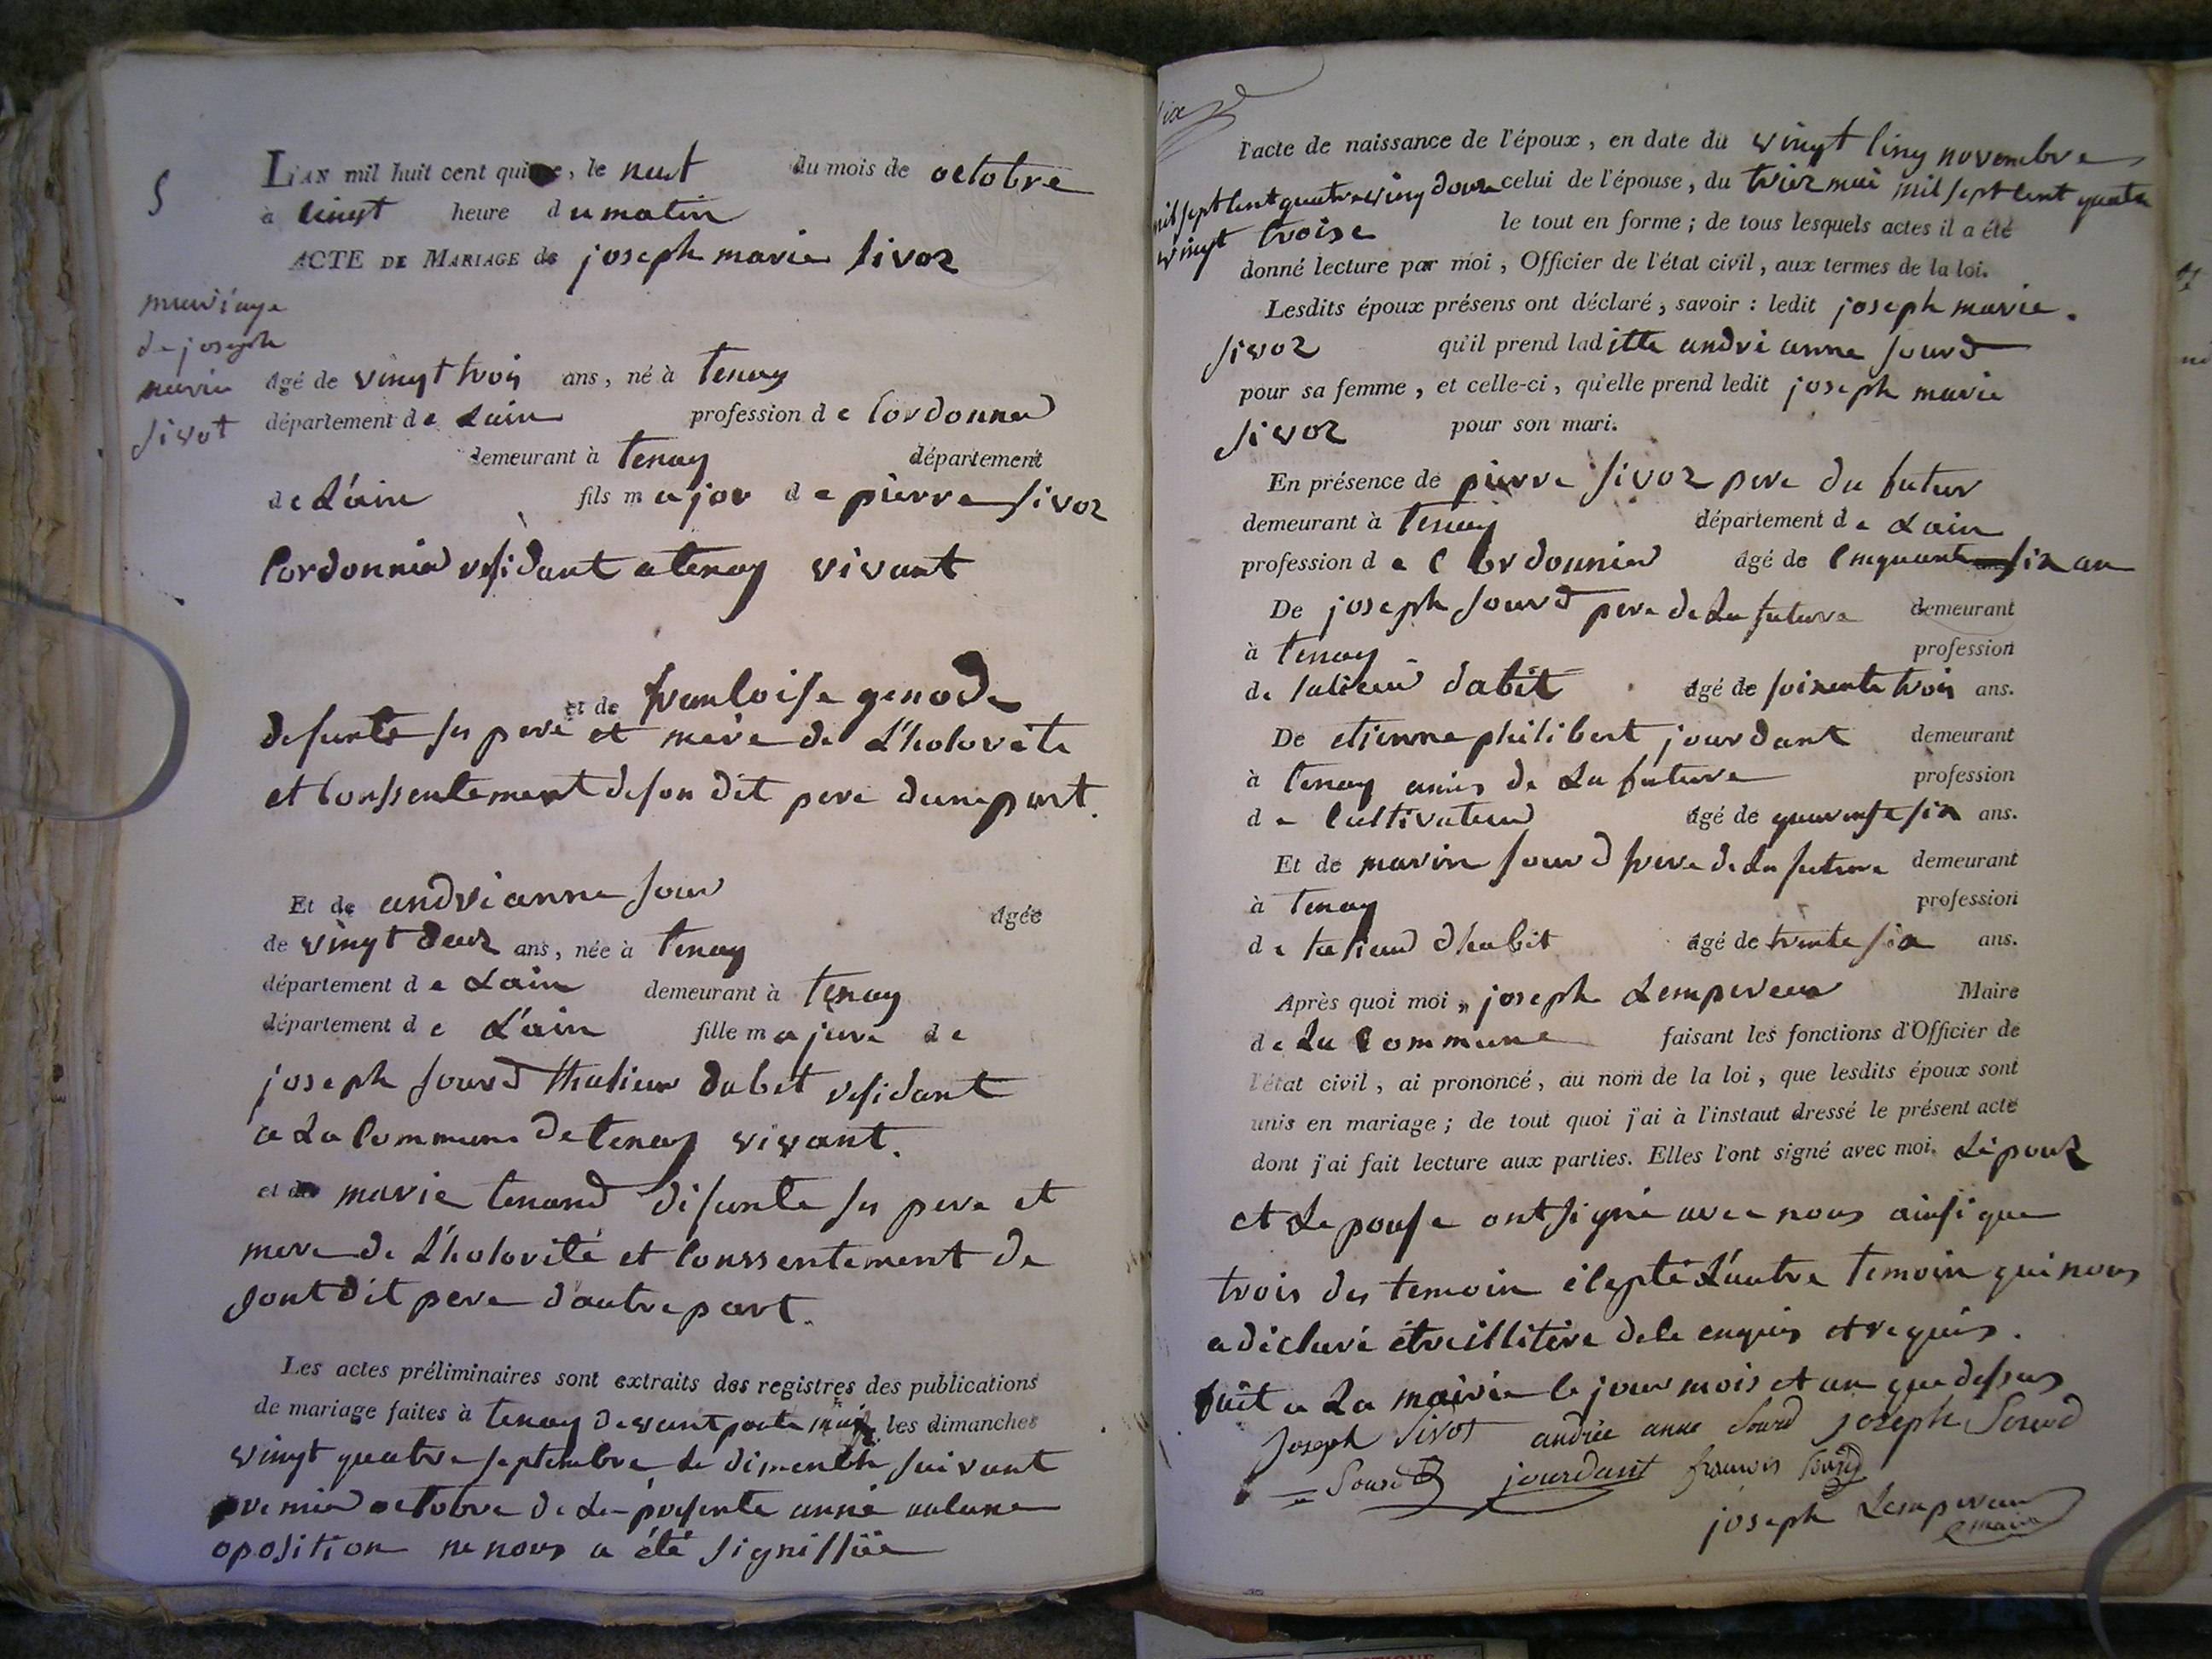 5
L'AN mil huit cent quinze, le neuf du mois de octobre
à cinq heure du matin
ACTE DE MARIAGE de joseph marie sivoz
mariage
de joseph
marie
sivot
âgé de vingt trois ans, né à tenay
département de Lain profession de Cordonnier
demeurant à tenay département
de L'ain fils major de pierre sivoz
Cordonnier residant a tenay vivant
et de francoise genod
defunte ses pere et mère de L'hotorité
et Conssentement de son dit pere dune part.
Et de andrianne sour
âgée
de vingt deux ans, née à tenay
département de Lain demeurant à tenay
département de L'ain fille majeure de
joseph sourd thalieur dabet residant
a La Commune de tenay vivant.
et de marie tenand defunte ses pere et
mere de L'hotorité et Conssentement de
sont dit pere d'autre part.
Les actes préliminaires sont extraits des registres des publications
de mariage faites à tenay devant porte les dimanches
vingt quatre septembre Le dimenche suivant
premier octobre de La présente anné aucune
oposition ne nous a été signiffiée
l'acte de naissance de l'époux, en date du vingt cinq novembre
mil sept cent quatre ving douze celui de l'épouse, du mai mil sept cent quatre
vingt troise le tout en forme; de tous lesquels actes il a été
donné lecture par moi, Officier de l'état civil, aux termes de la loi.
Lesdits époux présens ont déclaré, savoir : ledit joseph marie
sivoz qu'il prend laditte andrianne sourd
pour sa femme, et celle-ci, qu'elle prend ledit joseph marie
sivoz pour son mari.
En présence de pierre sivoz pere du futur
demeurant à tenay département de Lain
profession de Cordonnier âgé de cinquante six an
De joseph sourd pere de La future demeurant
à tenay profession
de talieur dabit âgé de soixente trois ans.
De etienne philibert jourdant demeurant
à tenay amis de La future profession
de Cultivateur âgé de quarente six ans.
Et de marin sourd frere de La future demeurant
à tenay profession
de talieur dhabit âgé de trente six ans.
Après quoi moi, joseph Lempereur Maire
de La Commune faisant les fonctions d'Officier de
l'état civil, ai prononcé, au nom de la loi, que lesdits époux sont
unis en mariage; de tout quoi j'ai à l'instaut dressé le présent acte
dont j'ai fait lecture aux parties. Elles l'ont signé avec moi. Lépouz
et Lepouse ont signé avec nous ainsi que
trois des temoin élepté L'autre temoin qui nous
a déclaré étre illitéré de le enquis et requis.
fait a La mairie le jour mois et an que dessus
Joseph Sivot andrée anne Sourd joseph Sourd
Sourd jourdant francois sourd
joseph Lempereur
maire